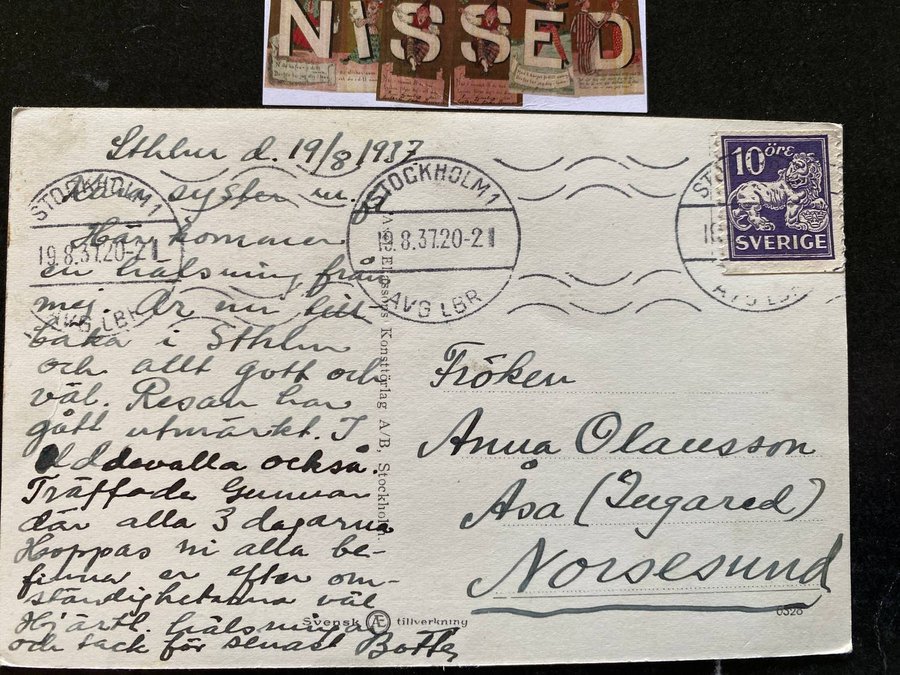 NISSED
Sthlm d. 19/8 1937
Kära syster m.
Här kommer
en hälsning från
mej. Är nu till
baka i Sthlm
och allt gott och
väl. Resan har
gått utmärkt. I
Uddevalla också.
Träffade Gunnar
där alla 3 dagarna
Hoppas ni alla be-
finna er efter om-
ständigheterna väl
Hjärtl. hälsningar
och tack för senast
STOCKHOLM 1
19.8.37.20-21
AVG LBR
STOCKHOLM 1
19.8.37.20-21
AVG LBR
Konstförlag A/B, Stockholm
Svensk Æ tillverkning
10 öre
SVERIGE
Fröken
Anna Olausson
Åsa (Ingared)
Norsesund